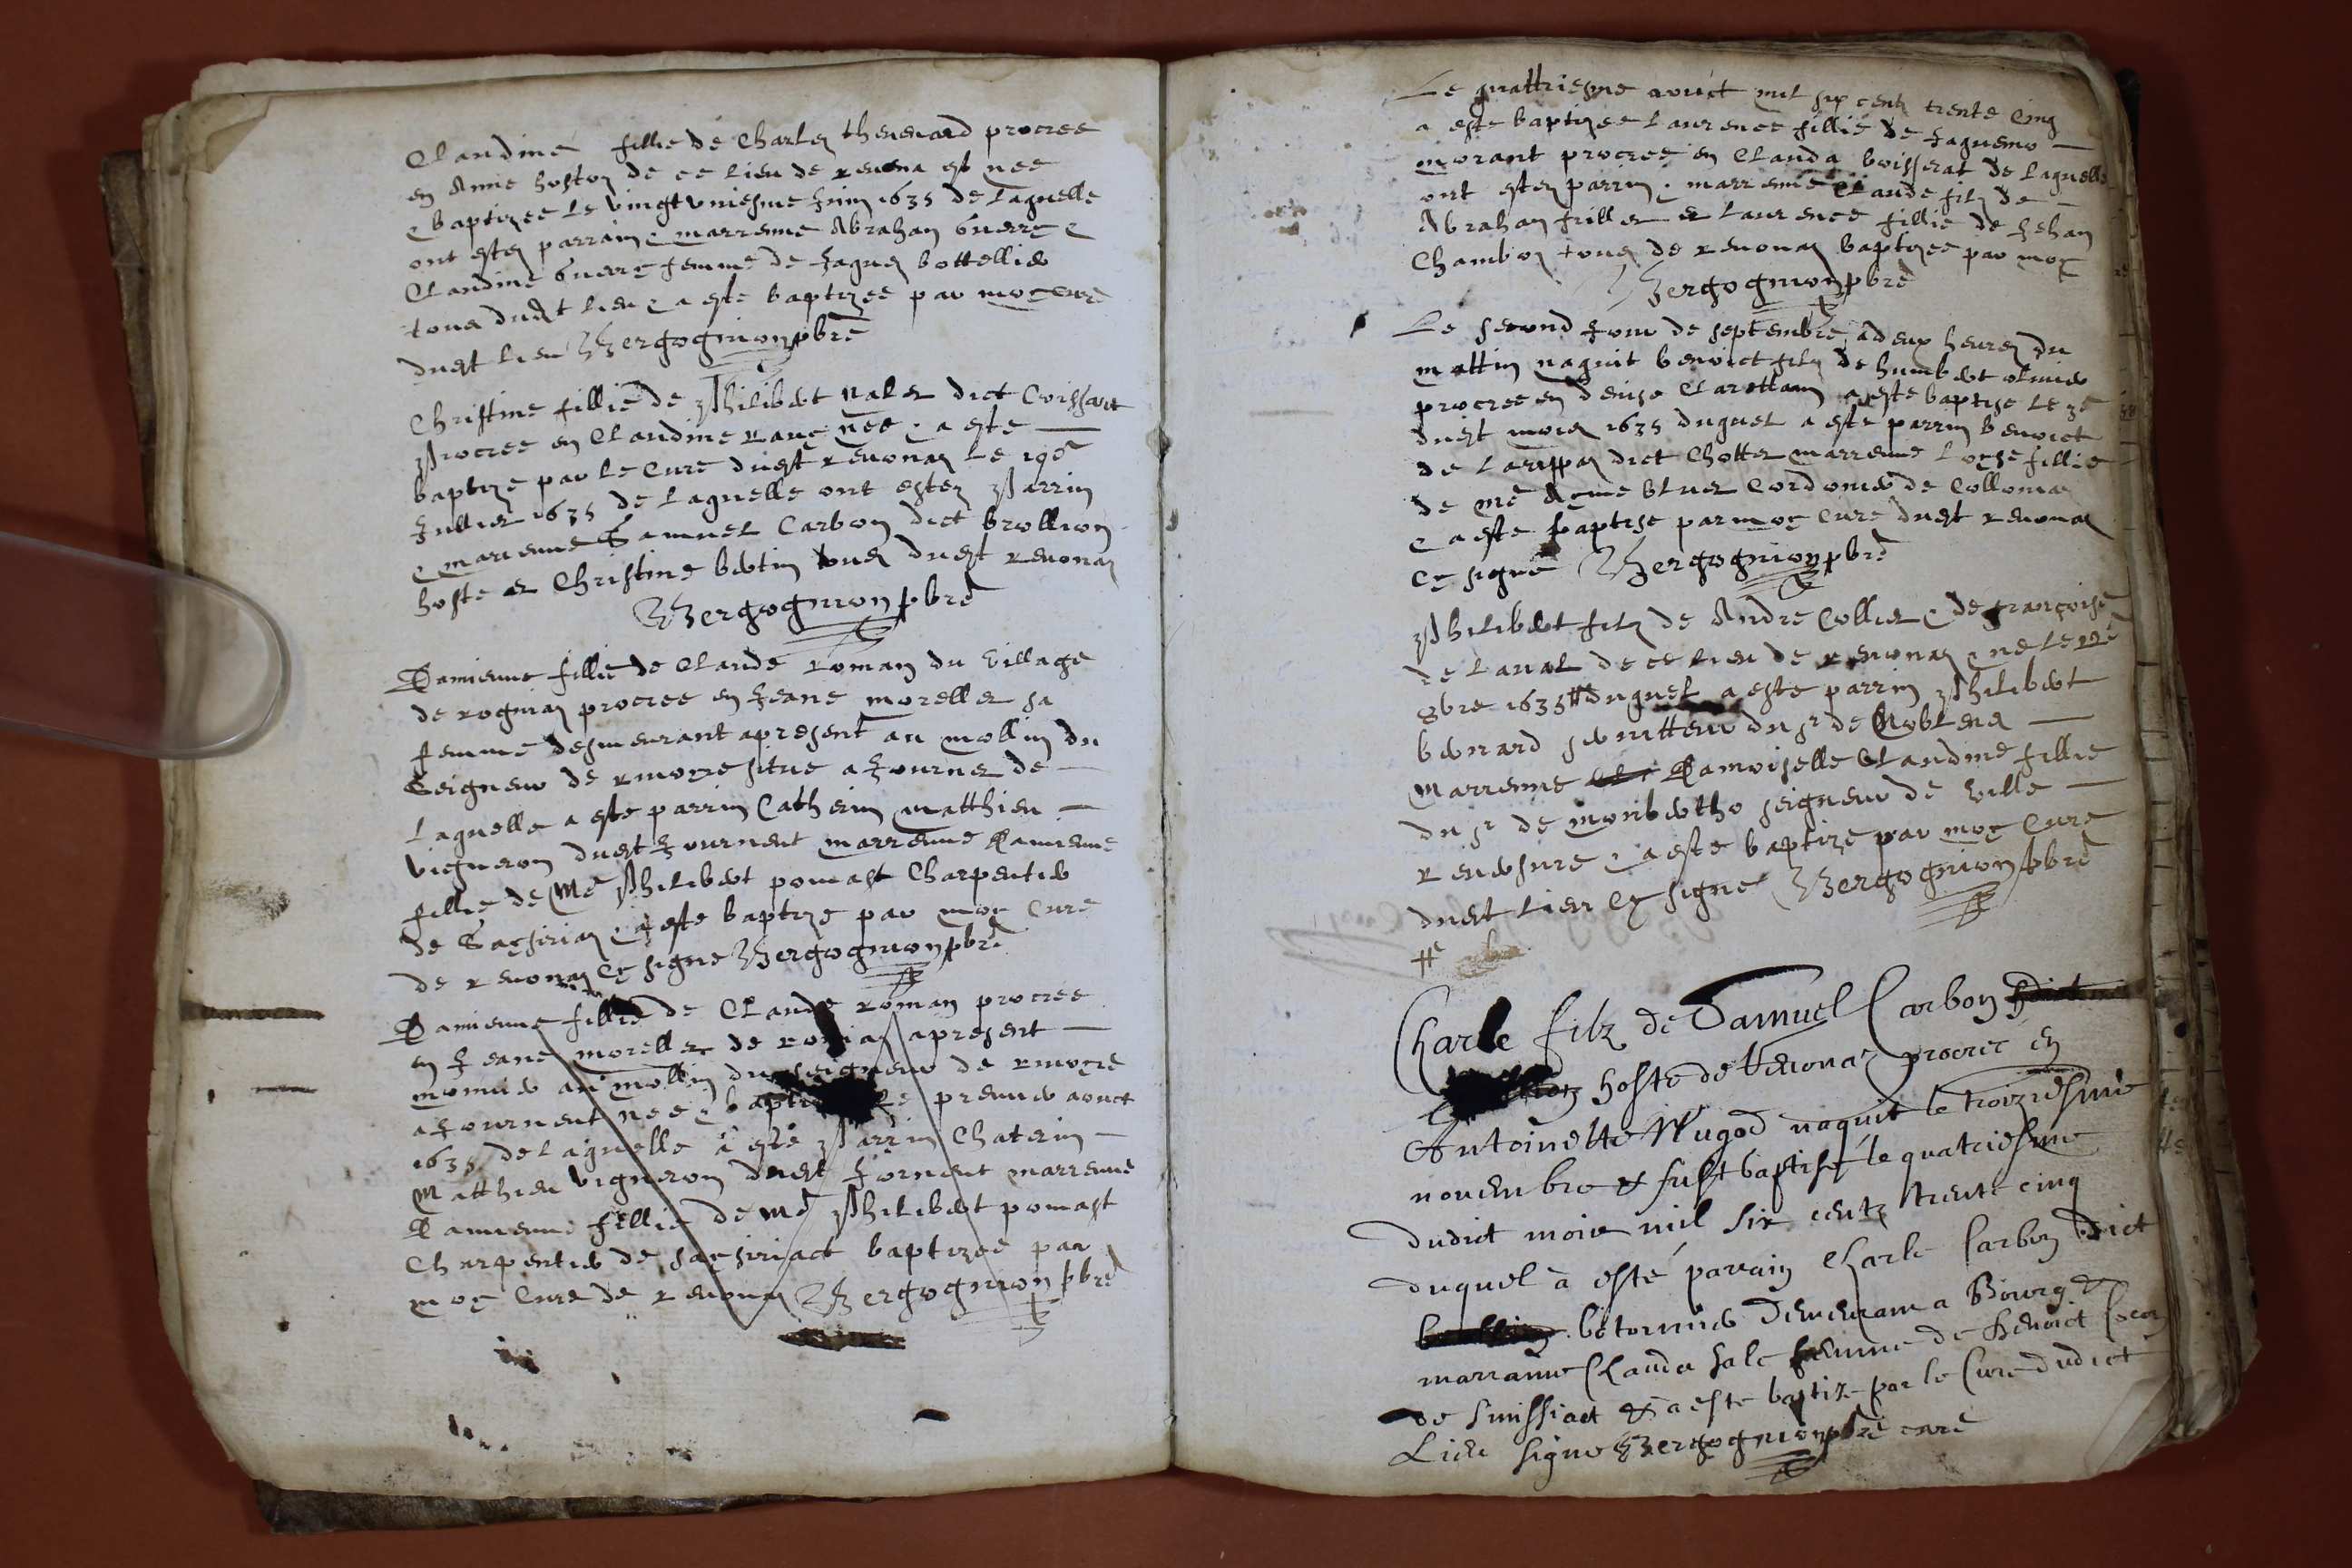 Claudine fillie de Charles thevenard procree
en Anne hoston de ce lieu de revona est nee
& baptizee le vingt uniesme Juin 1635 de laquelle
ont estez parrain & marrenne Abraham Guerre &
Claudine Guerre femme de Jaques bottellier
tous dudt lieu & a este baptizee par moy cure
dudt lieu Bergognion pbre
Christine fillie de Philibert nalet dict Coissart
Procree en Claudine nee & a este
baptize par le Cure dudt revonas le 19e
Jullier 1635 de laquelle ont estez Parrin
& marrenne Samuel Carbon dict brollion
hoste et Christine bertin tous dudt revonas
Bergognion pbre
Damienne fillie de Claude roman du village
de rognias procree en Jeane morellet sa
femme desmeurant apresent au mollin du
Seigneur de rivoire situe a Journet de
laquelle a este parrin Catherin matthieu
vigneron dudt Journent marrenne Damienne
fillie de Me Philibert pomast Charpentier
de & a este baptize par moy Cure
de revonas & signe Bergognion pbre
Damienne fillie de Claude roman procree
en Jeane morellet de apresent
monnier au mollin du seigneur de rivoire
a Journent nee & le premier aouct
1635 de laquelle a este Parrin Chaterin
Matthieu vigneron dudt Jornent marrenne
Damienne fillie de Me Philibert pomast
Charpentier de baptizee par
moy Cure de revonas Bergognion pbre
Le quattriesme aouct mil six centz trente cinq
a este baptizee Laurence fillie de Jaquemo
morant procree en Clauda boisserat de laquelle
ont estez parrin & marrenne Claude filz de
Abraham et laurence fillie de Jehan
Chambon tous de revonas baptizee par moy
Bergognion pbre
Le second Jour de septembre a deux heures du
mattin naquit benoict filz de humbert
procree en denise a este baptise le 3e
dudt mois 1635 duquel a este parrin benoict
de dict Chottet marrenne loyse fillie
de me Cordonier de
& a este baptise par moy Cure dudt revonas
& signe Bergognion pbre
Philibert filz de Andre Collet & de françoise
de laval de ce lieu de revonas & ne le
8bre 1635 # duquel a este parrin Philibert
bernard serviteur du sr de Noblens
marrenne Damoiselle Claudine fillie
du sr de seigneur de ville
reversure & a este baptize par moy Cure
dudt lieu & signe Bergognion pbre
#
Charle filz de Samuel Carbon
hoste de Revonas procree en
Antoinette naquit le troiziesme
novembre & fust baptisé le quatriesme
dudict mois mil six centz trente cinq
duquel à esté parain Charle Carbon dict
demeurant a Bourg &
marranne Clauda femme de Benoict
de & a este baptize par le Cure dudict
Lieu signe Bergognion pbre cure